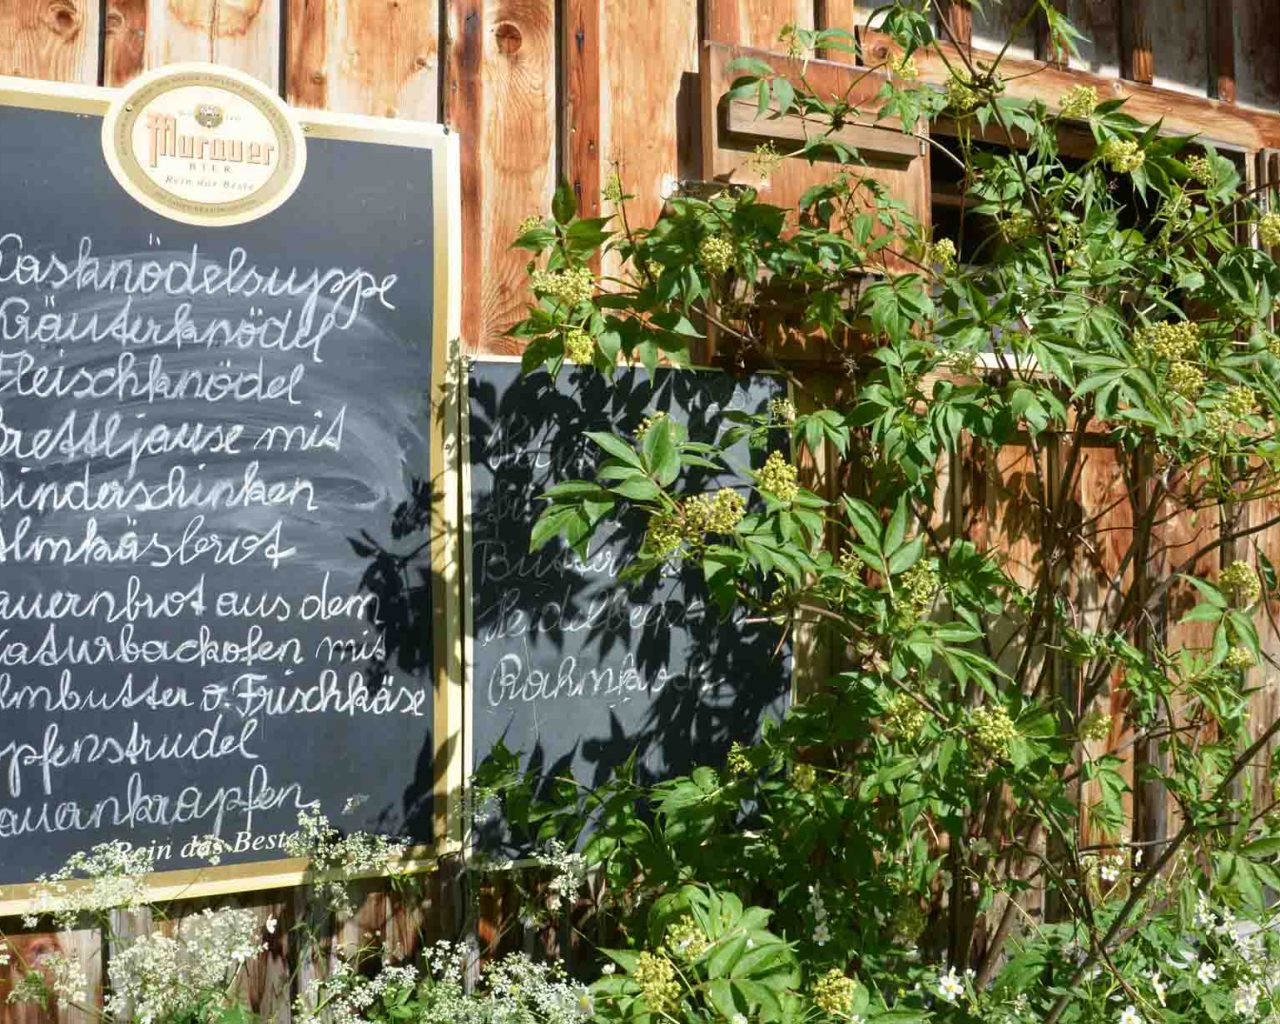 Murauer
BIER
Rein das Beste
Kasknödelsuppe
Kräuterknödel
Fleischknödel
Brettljause mit
Rinderschinken
Almkäsbrot
auernbrot aus dem
Naturbackofen mit
lmbutter o. Frischkäse
opfenstrudel
auernkrapfen
Rein das Beste
Butter
Heidelbeer
Rahmkoch